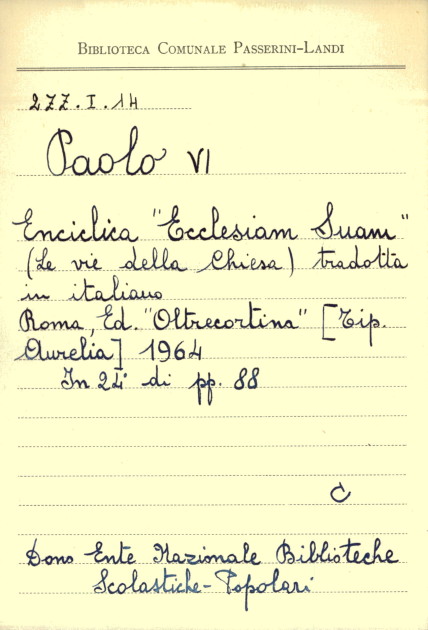 BIBLIOTECA COMUNALE PASSERINI-LANDI
2ZZ.I.14
Paolo VI
Enciclica "Ecclesiam Suam"
(Le vie della Chiesa) tradotta
in italiano
Roma, Ed. "Oltrecortina" [Tip.
Aurelia] 1964
In 24° di pp. 88
C
Dono Ente Nazionale Biblioteche
Scolastiche-Popolari